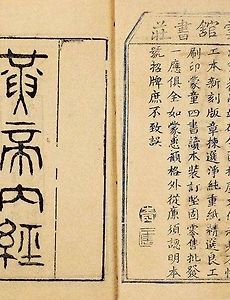 舘書莊
工本新刻版章揀選淨純重紙精選良工
刷印蒙童四書讀本裝訂堅固零售批發
一應俱全如蒙惠顧格外從廉須認明本
號招牌庶不致誤
黃帝內經